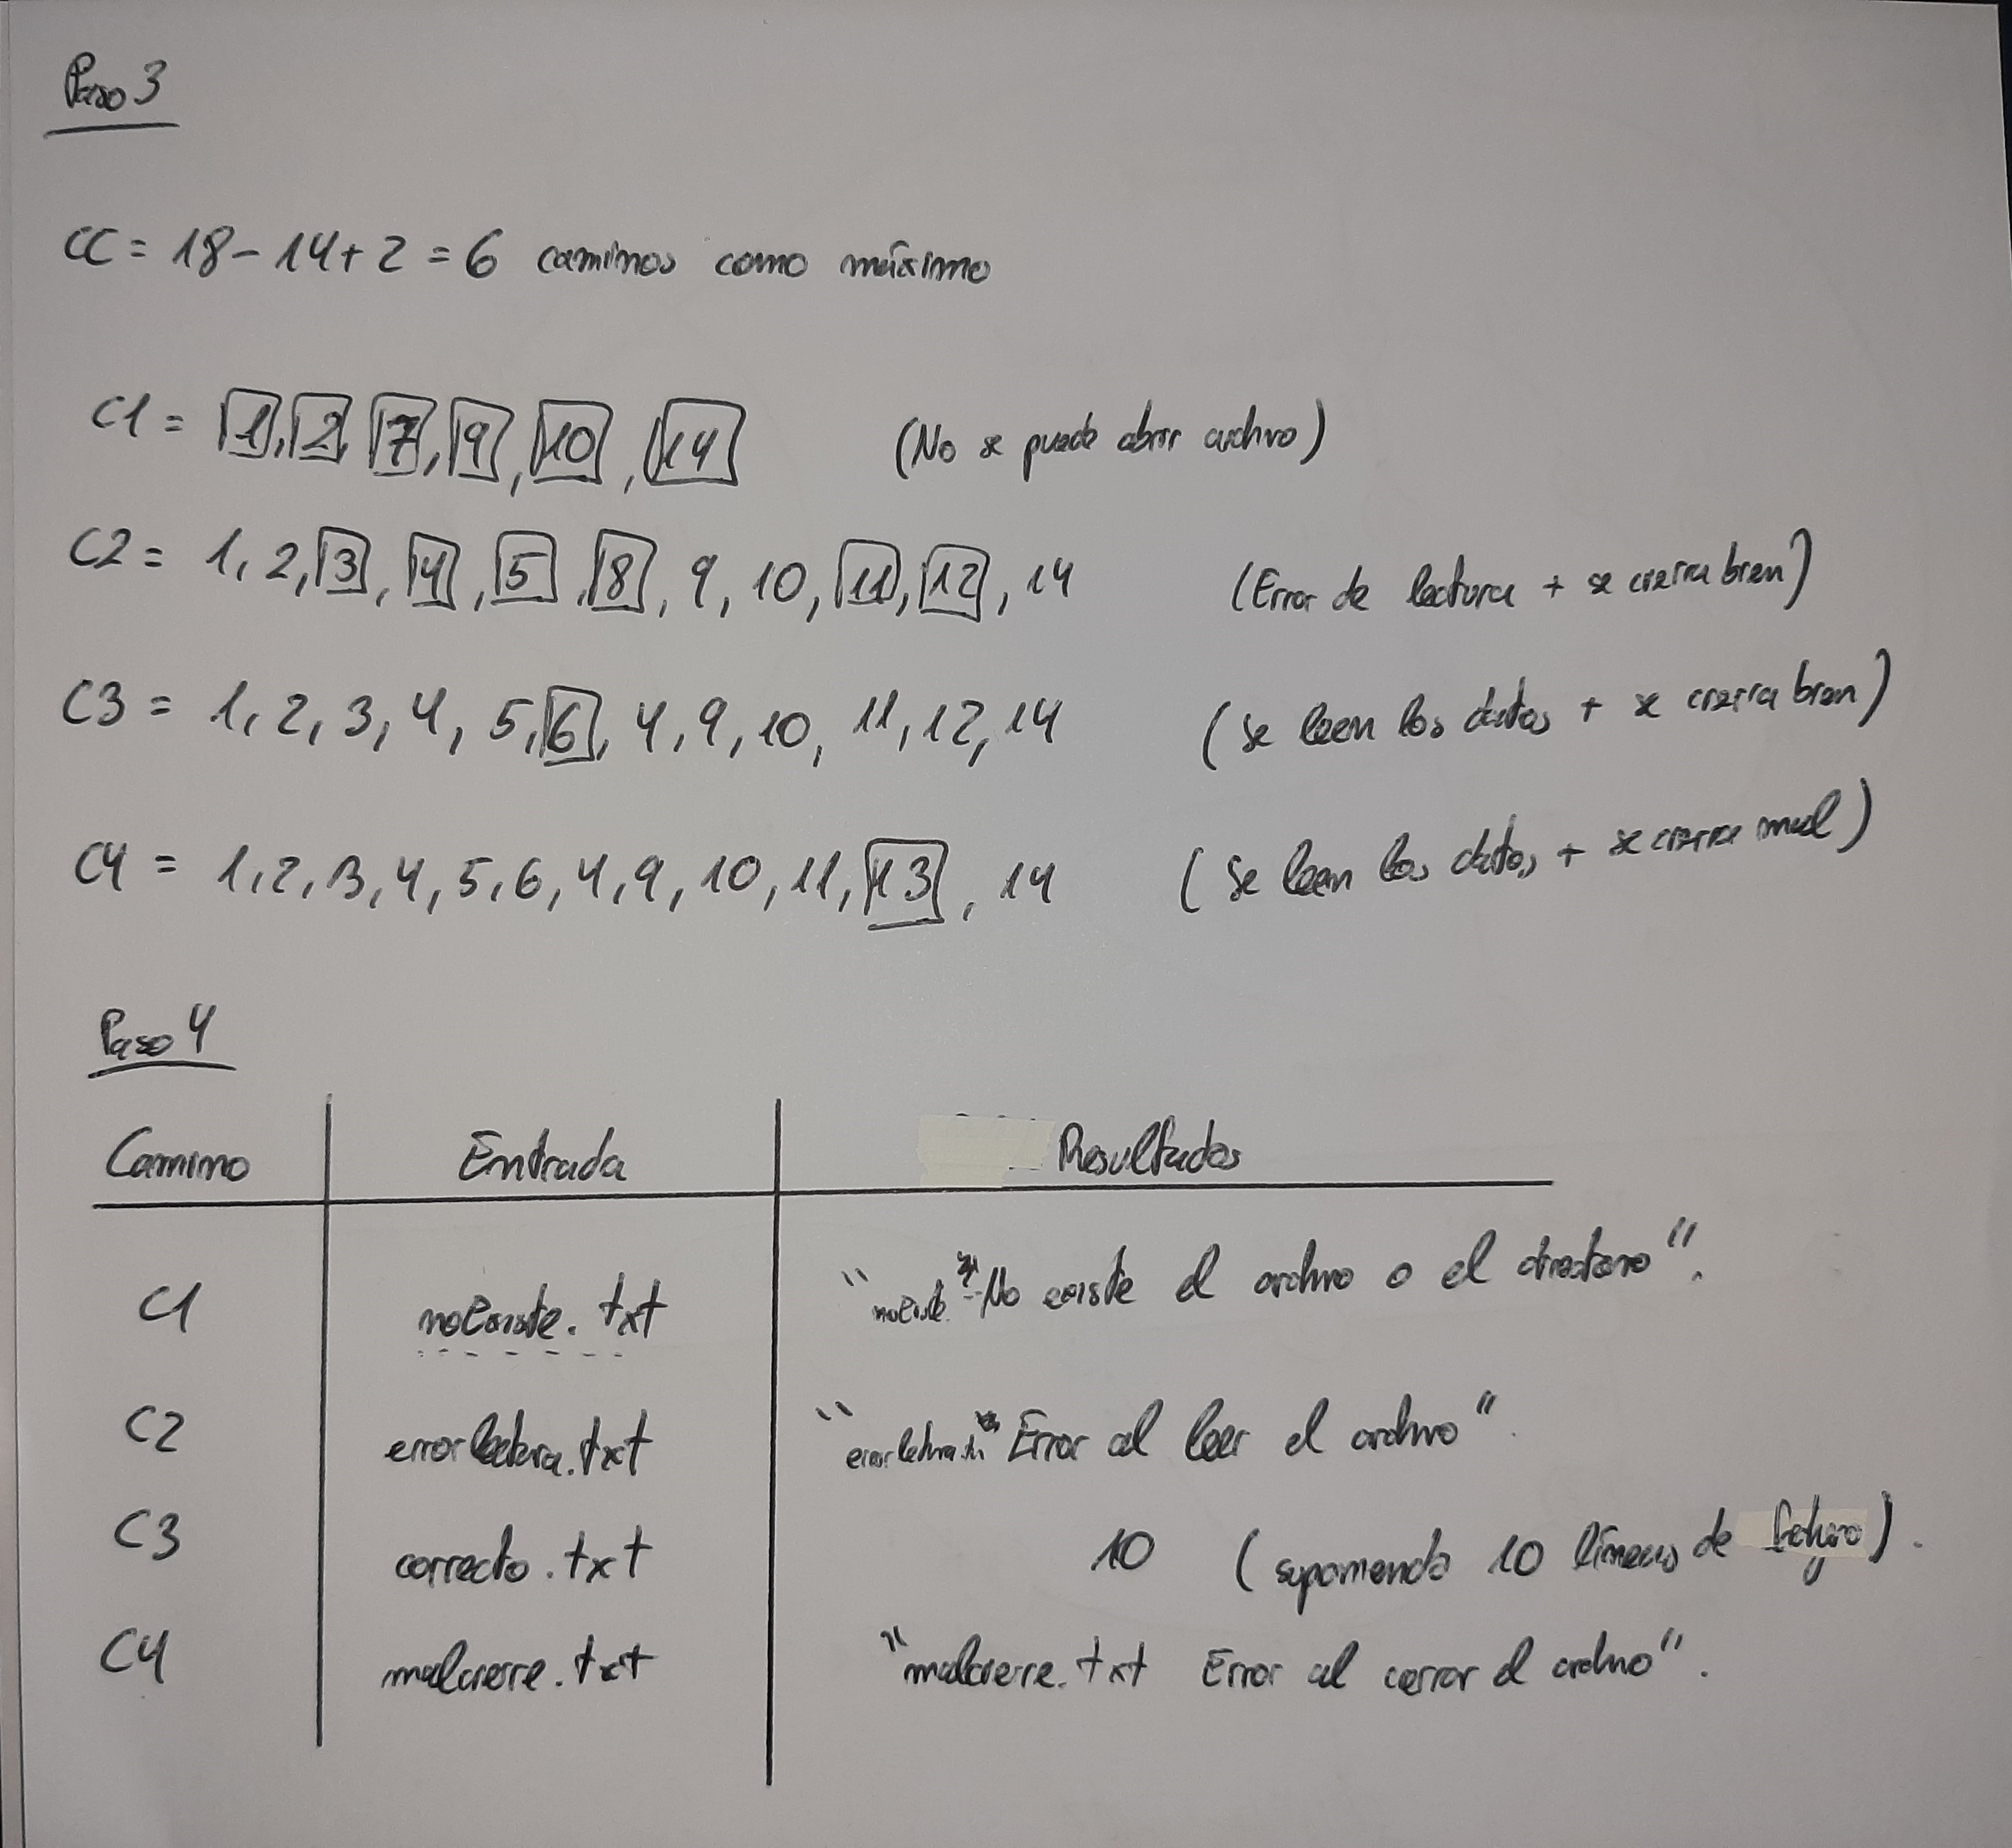 Paso 3
CC = 18 - 14 + 2 = 6 caminos como máximo
C1 = 1, 2, 7, 9, 10, 14 (No se puede abrir archivo)
C2 = 1, 2, 3, 4, 5, 8, 9, 10, 11, 12, 14 (Error de lectura + se cierra bien)
C3 = 1, 2, 3, 4, 5, 6, 4, 9, 10, 11, 12, 14 (se leen los datos + se cierra bien)
C4 = 1, 2, 3, 4, 5, 6, 4, 9, 10, 11, 13, 14 (se leen los datos + se cierra mal)
Paso 4
Camino Entrada Resultados
C1 noExiste.txt "noExiste. No existe el archivo o el directorio".
C2 errorlectura.txt " Error al leer el archivo".
C3 correcto.txt 10 (suponiendo 10 líneas de fichero).
C4 malcierre.txt "malcierre.txt Error al cerrar el archivo".